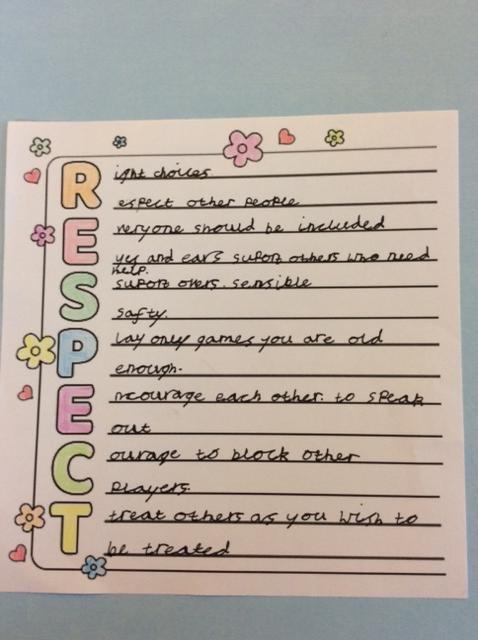 R ight choices
espect other people
E veryone should be included
yes and ears suport others who need
help.
S suport overs. sensible
safty.
P lay only games you are old
enough.
E ncourage each other. to speak
out
C ourage to block other
players.
T treat others as you wish to
be treated